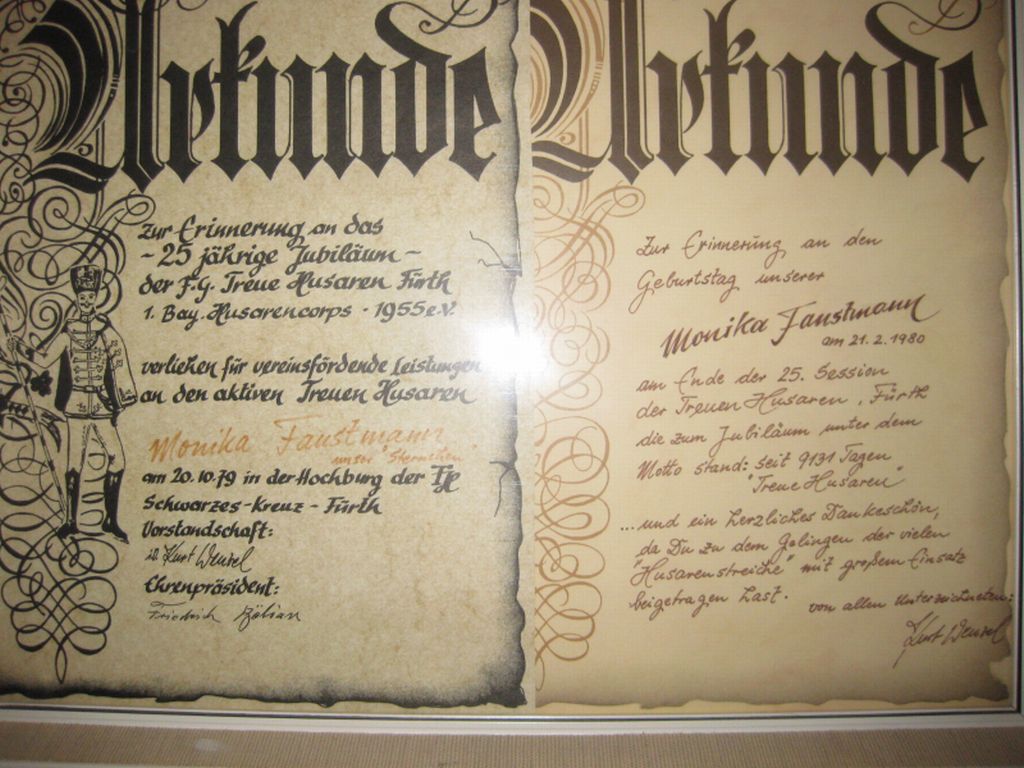 Urkunde
Zur Erinnerung an das
- 25 jährige Jubiläum -
der F.G. Treue Husaren Fürth
1. Bay. Husarencorps - 1955 e.V.
verliehen für vereinsfördende Leistungen
an den aktiven Treuen Husaren
Monika Faustmann
unser "Sternchen"
am 20.10.79 in der Hochburg der
Schwarzes-Kreuz - Fürth
Vorstandschaft:
Kurt Wenzel
Ehrenpräsident:
Friedrich
Urkunde
Zur Erinnerung an den
Geburtstag unserer
Monika Faustmann
am 21.2.1980
am Ende der 25. Session
der Treuen Husaren, Fürth
die zum Jubiläum unter dem
Motto stand: seit 9131 Tagen
"Treue Husaren"
...und ein herzliches Dankeschön,
da Du zu dem Gelingen der vielen
"Husarenstreiche" mit großem Einsatz
beigetragen hast.
von allen Unterzeichneten:
Kurt Wenzel